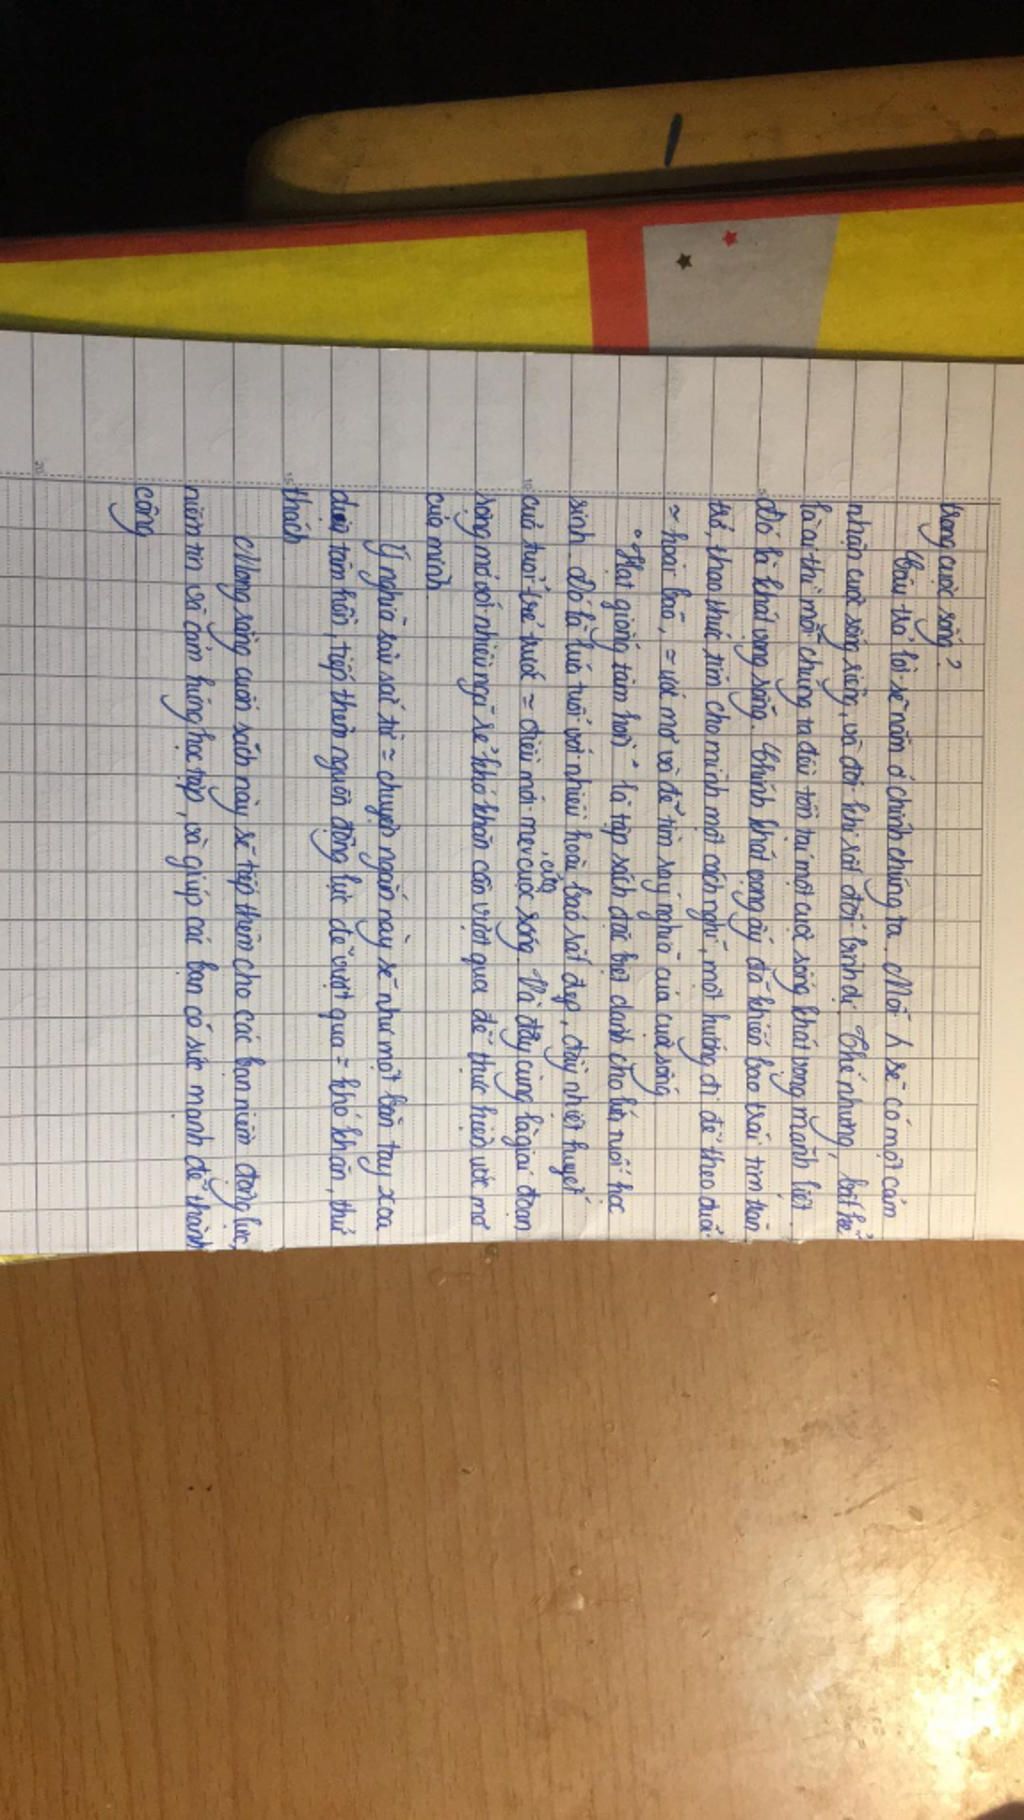 trong cuộc sống?
Câu trả lời sẽ nằm ở chính chúng ta. Mỗi sẽ có một cảm
nhận cuộc sống riêng, và đôi khi rất đỗi bình dị. Thế nhưng, bất kể
là ai thì mỗi chúng ta đều tồn tại một cuộc sống khát vọng mãnh liệt.
Đó là khát vọng sống. Chính khát vọng ấy đã khiến bao trái tim trăn
trở, thao thức tìm cho mình một cách nghĩ, một hướng đi để theo đuổi
= hoài bão, = ước mơ và để tìm ra ý nghĩa của cuộc sống
"Hạt giống tâm hồn" là tập sách đặc biệt dành cho lứa tuổi học
sinh. Đó là lứa tuổi với nhiều hoài bão rất đẹp, đầy nhiệt huyết
của tuổi trẻ trước = điều mới mẻ của cuộc sống. Và đây cũng là giai đoạn
sóng mở với nhiều ngã rẽ khó khăn cần vượt qua để thực hiện ước mơ
của mình
Ý nghĩa sâu sắc từ = chuyện ngắn này sẽ như một bàn tay xoa
dịu tâm hồn, tiếp thêm nguồn động lực để vượt qua = khó khăn, thử
15
thách
Mong rằng cuốn sách này sẽ tiếp thêm cho các bạn niềm động lực,
niềm tin và cảm hứng học tập, và giúp các bạn có sức mạnh để thành
công
20